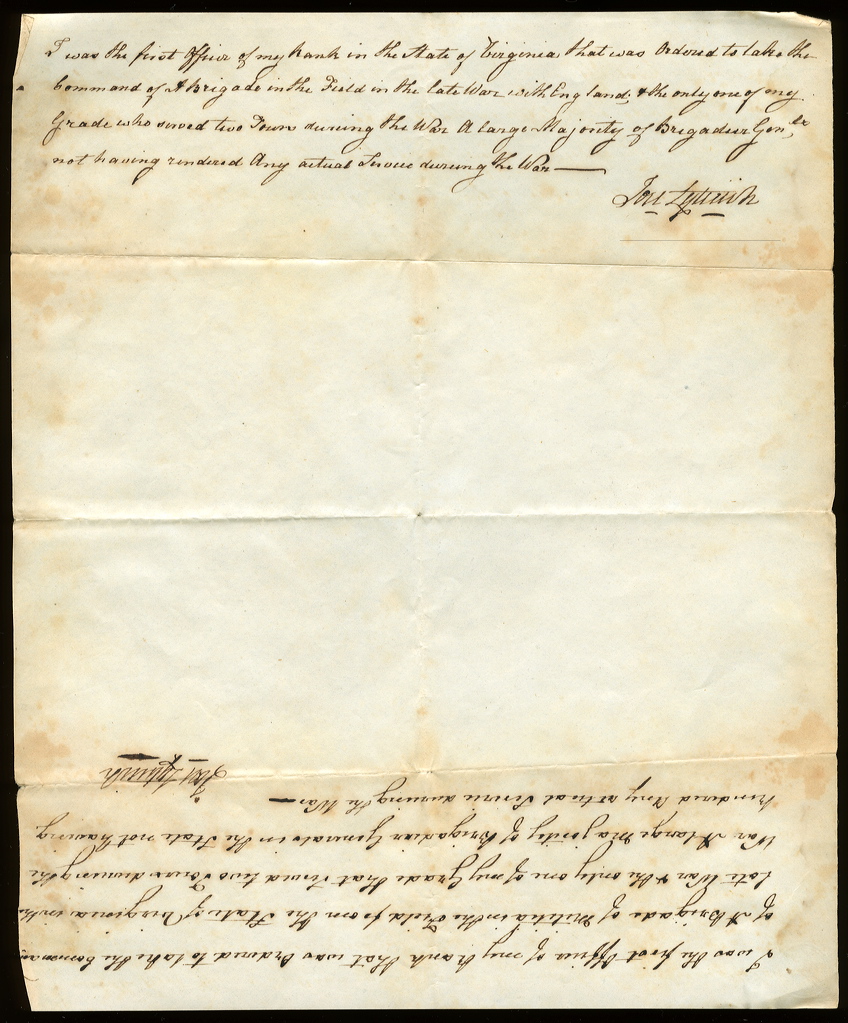 I was the first Officer of my Rank in the State of Virginia that was Ordered to take the
Command of A Brigade in the Field in the late War with England, & the only one of my
Grade who served two Tours during the War A large Majority of Brigadier Genls
not having rendered Any actual Service during the War —
I was the first Officer of my Rank that was Ordered to take the Comman
of A Brigade of Militia in the Field from the State of Virginia in the
late War & the only one of my Grade that served two Tours during the
War A large Majority of Brigadier Generals in the State not having
rendered Any actual Service during the War —